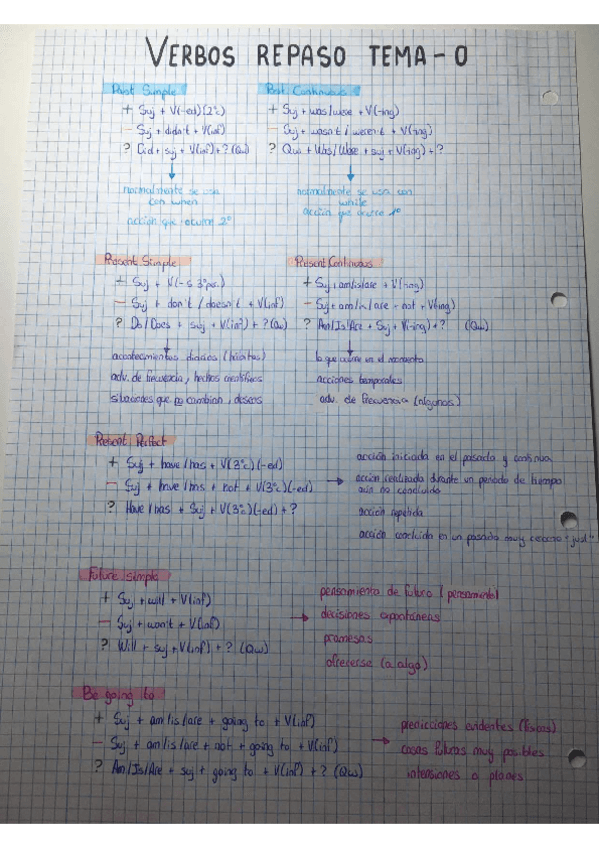 VERBOS REPASO TEMA - 0
Past Simple
+ Suj + V(-ed)(2ªc)
- Suj + didn't + V(inf)
? Did + suj + V(infº) + ? (Qw)
normalmente se usa
con when
acción que ocurre 2º
Past Continuous
+ Suj + was/were + V(-ing)
- Suj + wasn't / weren't + V(-ing)
? Qw + Was/Were + suj + V(-ing) + ?
normalmente se usa con
while
acción que ocurre 1º
Present Simple
+ Suj + V(-s 3ºpers.)
- Suj + don't / doesn't + V(inf)
? Do/Does + suj + V(infº) + ? (Qw)
acontecimientos diarios (hábitos)
adv. de frecuencia, hechos científicos
situaciones que no cambian, deseos
Present Continuous
+ Suj + am/is/are + V(-ing)
- Suj + am/is/are + not + V(-ing)
? Am/Is/Are + Suj + V(-ing) + ? (Qw)
lo que ocurre en el momento
acciones temporales
adv. de frecuencia (algunos)
Present Perfect
+ Suj + have/has + V(3ªc)(-ed)
- Suj + have/has + not + V(3ªc)(-ed)
? Have/has + Suj + V(3ªc)(-ed) + ?
acción iniciada en el pasado y continua
acción realizada durante un periodo de tiempo
aún no concluido
acción repetida
acción concluida en un pasado muy cercano "just"
Future Simple
+ Suj + will + V(inf)
- Suj + won't + V(inf)
? Will + suj + V(inf) + ? (Qw)
pensamiento de futuro (pensamiento)
decisiones espontáneas
promesas
ofrecerse (a algo)
Be going to
+ Suj + am/is/are + going to + V(inf)
- Suj + am/is/are + not + going to + V(inf)
? Am/Is/Are + suj + going to + V(inf) + ? (Qw)
predicciones evidentes (físicas)
cosas futuras muy posibles
intenciones o planes